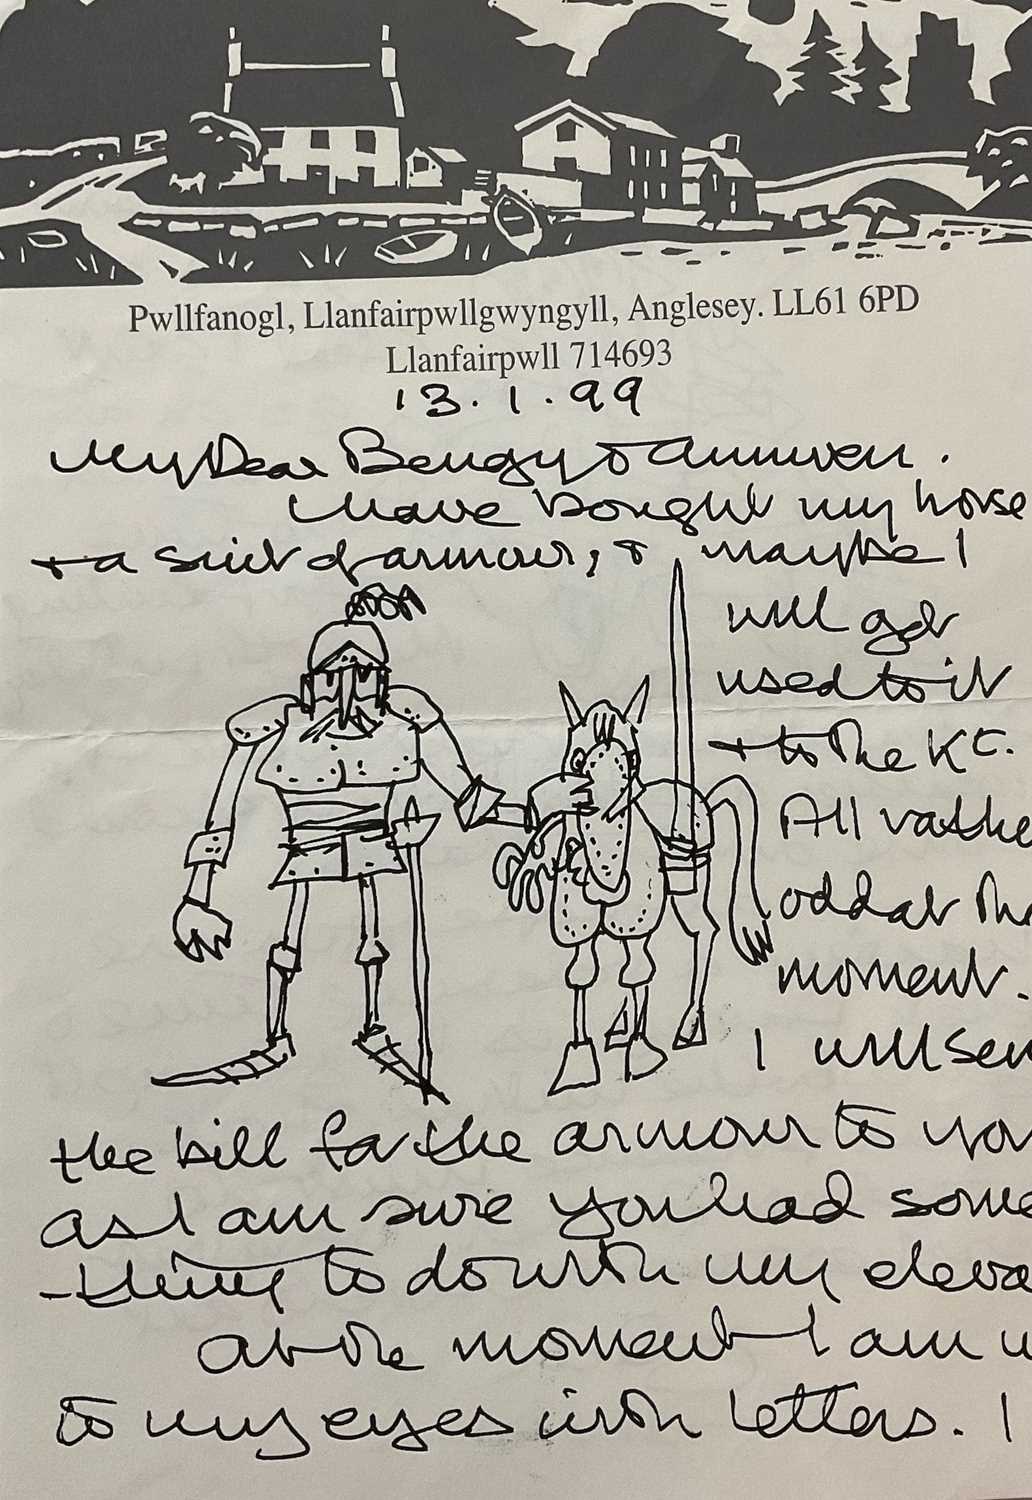 Pwllfanogl, Llanfairpwllgwyngyll, Anglesey. LL61 6PD
Llanfairpwll 714693
13.1.99
My Dear Bengy & Annwen.
I have bought my horse
& a suit of armour, & maybe I
will get
used to it
& to the Kt.
All rather
odd at the
moment.
I will sen
the bill for the armour to you
as I am sure you had some
-thing to do with my eleva
at the moment I am u
to my eyes with letters. I